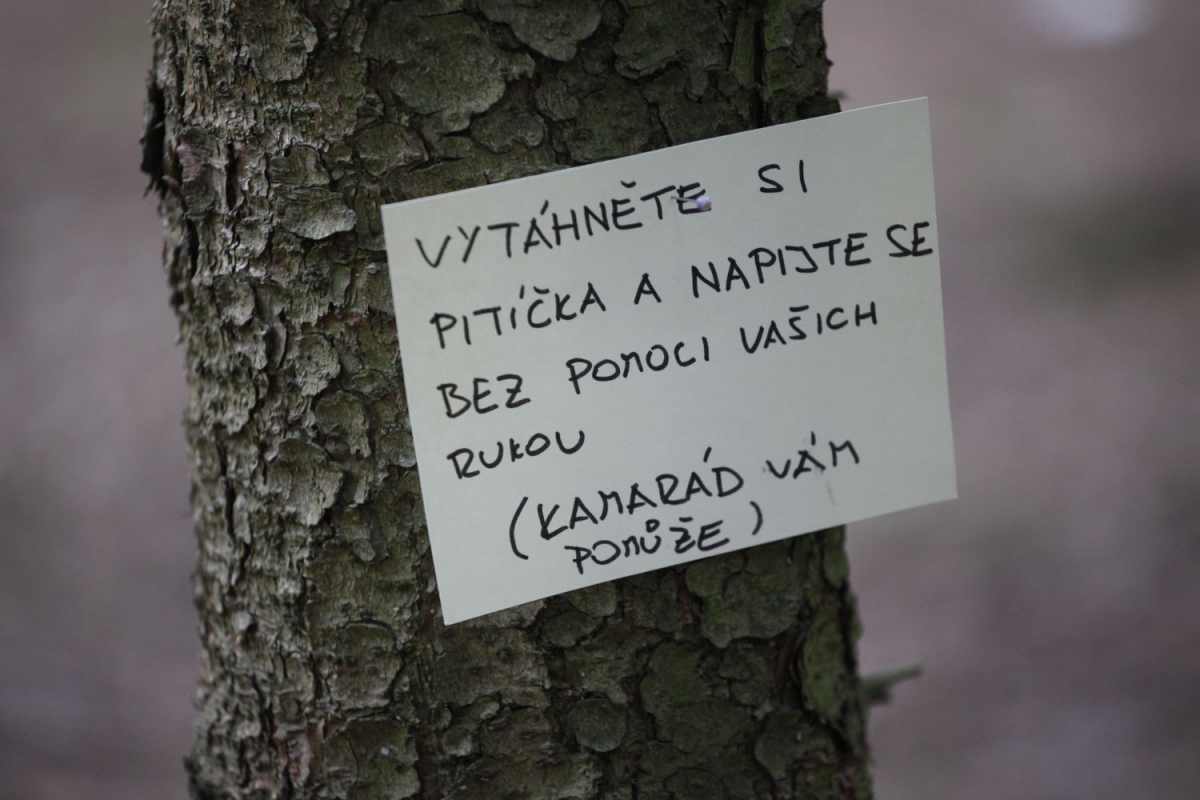 VYTÁHNĚTE SI
PITÍČKA A NAPIJTE SE
BEZ POMOCI VAŠICH
RUKOU
(KAMARÁD VÁM
POMŮŽE)